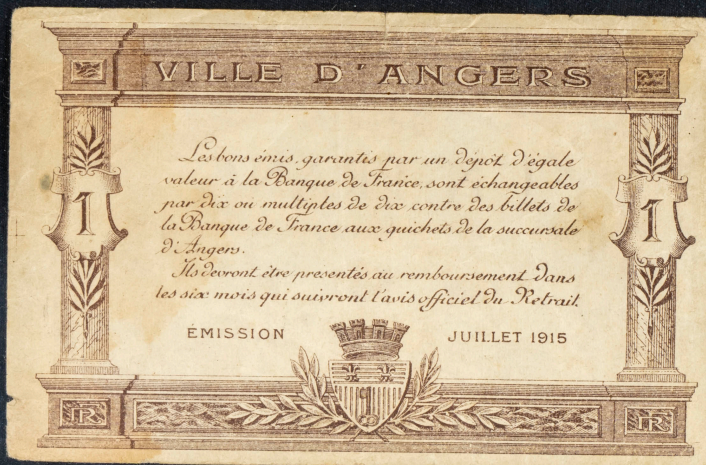 VILLE D'ANGERS
Les bons émis, garantis par un dépôt d'égale
valeur à la Banque de France, sont échangeables
par dix ou multiples de dix contre des billets de
la Banque de France aux guichets de la succursale
d'Angers.
Ils devront être presentés au remboursement dans
les six mois qui suivront l'avis officiel du Retrait.
1
1
ÉMISSION JUILLET 1915
RF
RF